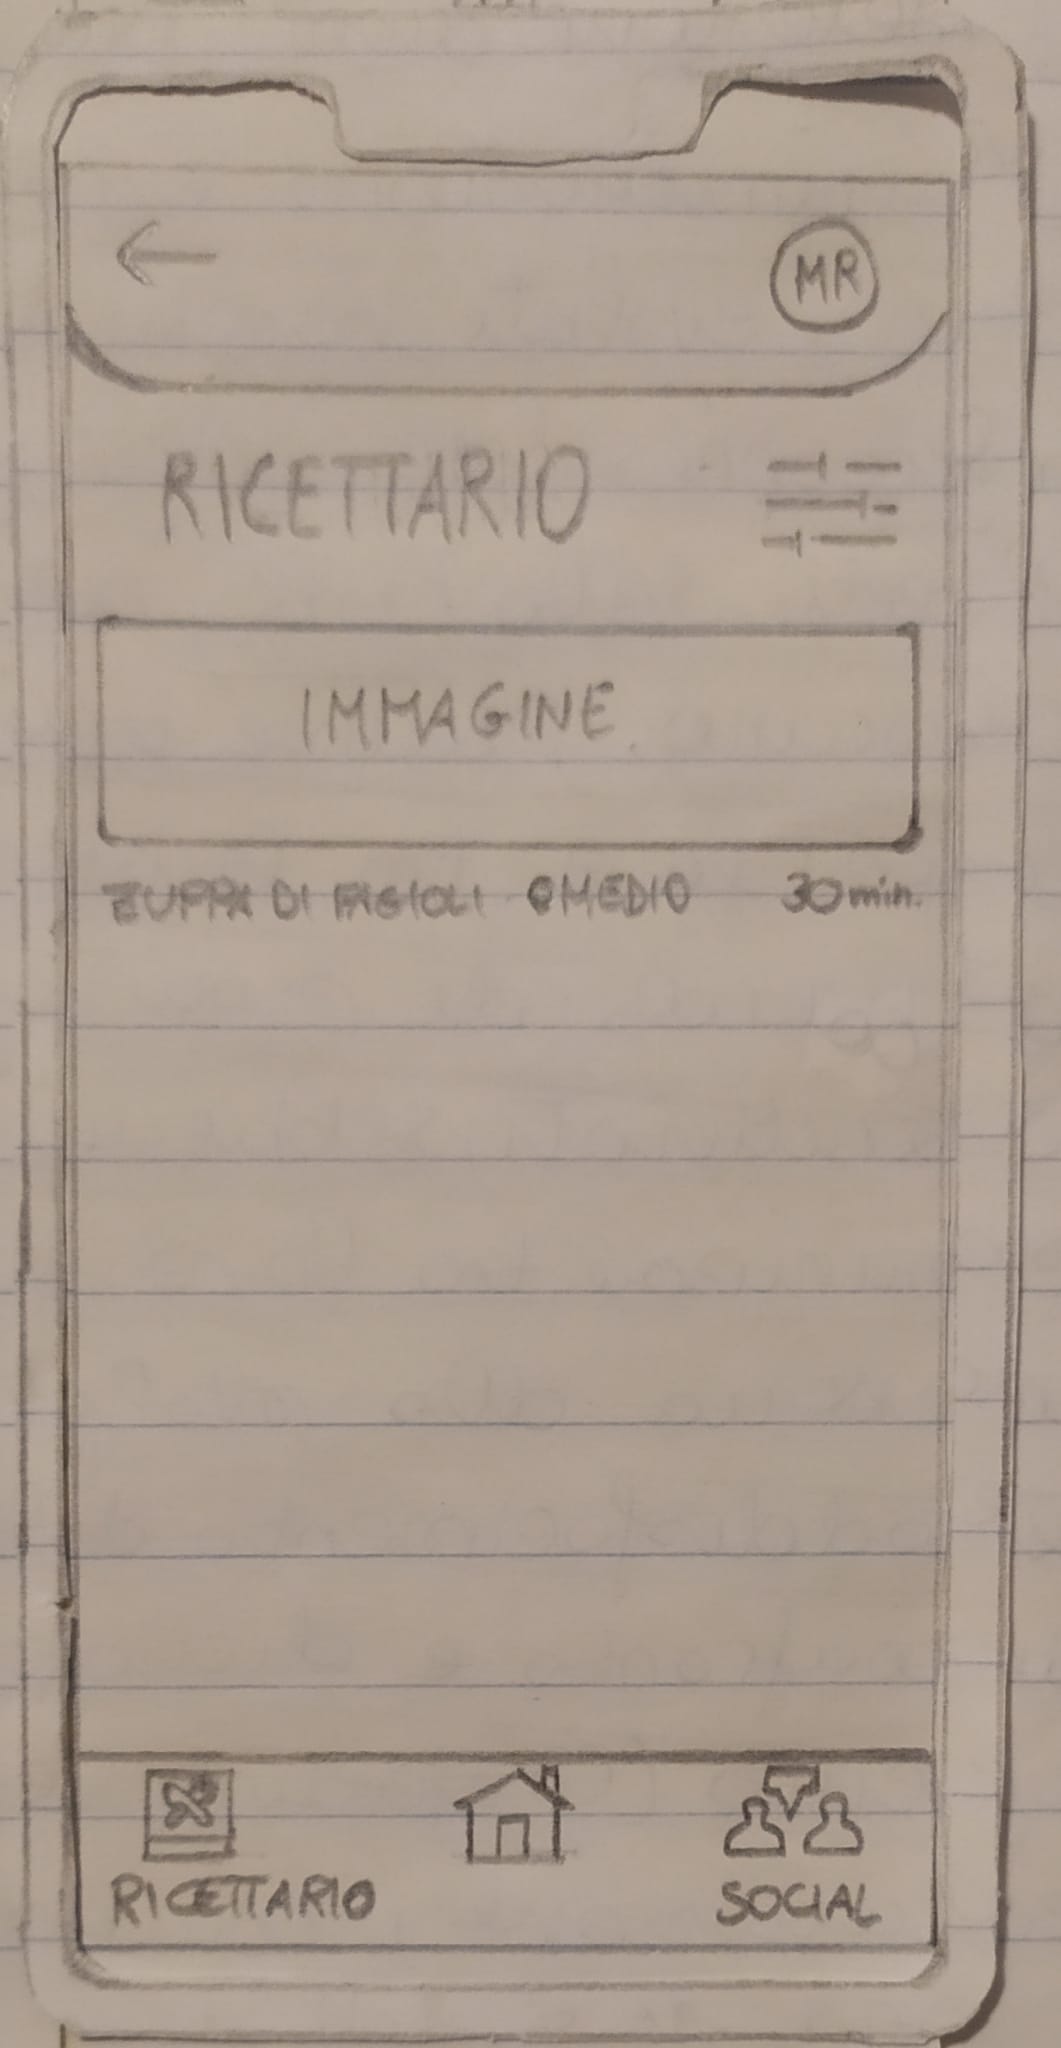 MR
RICETTARIO
IMMAGINE
ZUPPA DI FAGIOLI MEDIO 30 min.
RICETTARIO SOCIAL